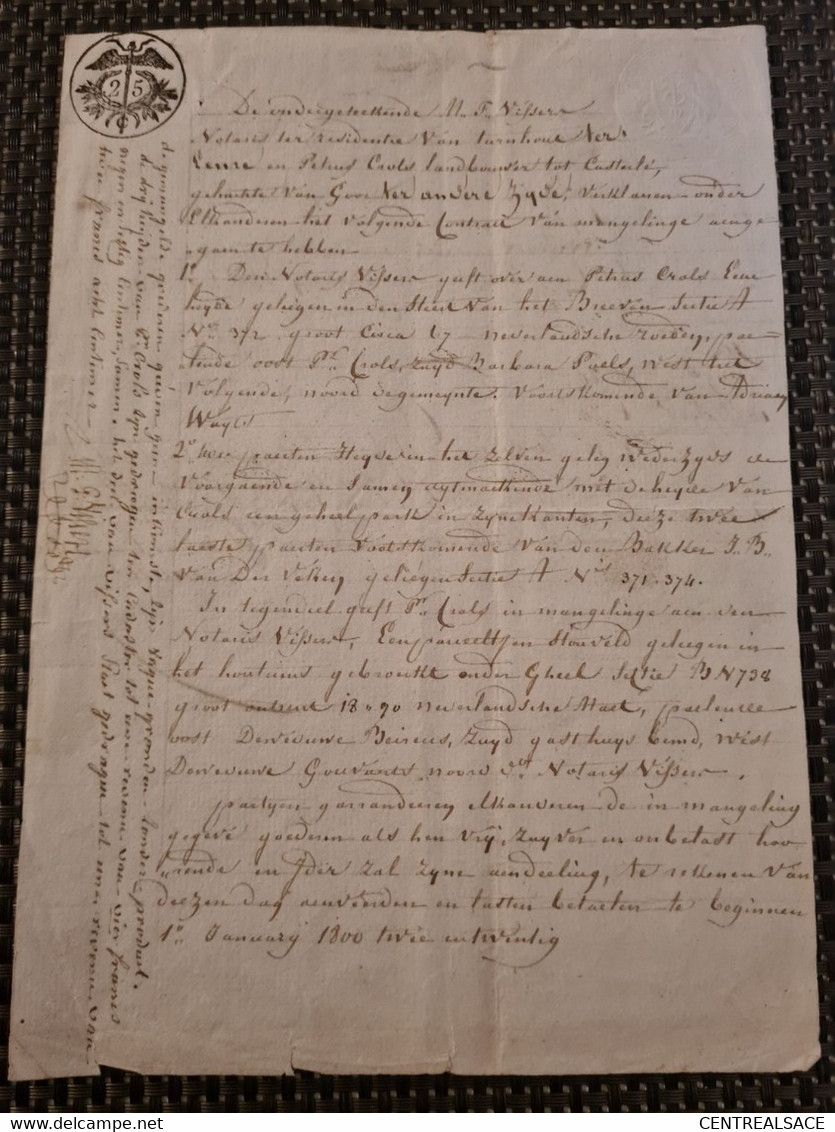 25
De ondergeteekende M. F. Vissers
Notaris ter residentie Van turnhout Ter
Eenre en Petrus Crols landbouwer tot Casterlé,
gehuchte Van Goor Ter andere Zyde, Verklaeren onder
Elkanderen het volgende Contract Van mangelinge aenge
gaen te hebben
1° Den Notaris Vissers geeft over aen Petrus Crols Eene
heyde gelegen in den Steert Van het Breeven Sectie A
N° 372 groot Circa 67 nederlandsche roeden, pae-
lende oost Ps. Crols, zuyd Barbara Poels, west het
Volgende, noord de gemeynte. Voortskomende Van Adriaen
Wuyts
2° twee paerten Heyde in het zelven geleg wederzyds de
Voorgaende en Samen uytmaekende met de heyde Van
Crols een geheel park in Zyne kanten, deeze twee
laeste paerten Voortskomende Van den Bakker J. B.
Van Der Veken gelegen Sectie A Nis 371. 374.
In tegendeel geeft Ps. Crols in mangelinge aen den
Notaris Vissers, Een parceeltjen gelegen in
het gebroeckt onder Gheel Sectie B N 738
groot omtrent 18-90 nederlandsche Maet, paelende
oost Deweduwe zuyd gasthuys bemd, West
Deweduwe Govaerts noord dn. Notaris Vissers.
partyen garranderen elkanderen de in mangeling
gegeve goederen als hen Vrij, zuyver en onbelast hoo-
rende en Jder zal zyne aendeeling, te rekenen Van
deezen dag aenveirden en lasten betaelen te beginnen
1n. January 1800 twee en twintig
de gemangelde goederen geven geen intereste, zyn vague gronden zonder product.
de dry heyden van Pr. Crols zyn gedragen ten Cadaster tot eene revenu van vier francs
negen en Centimen, Samen, het deel van Vissers Staet gedragen tot eene revenu van
thien francs acht Centimen